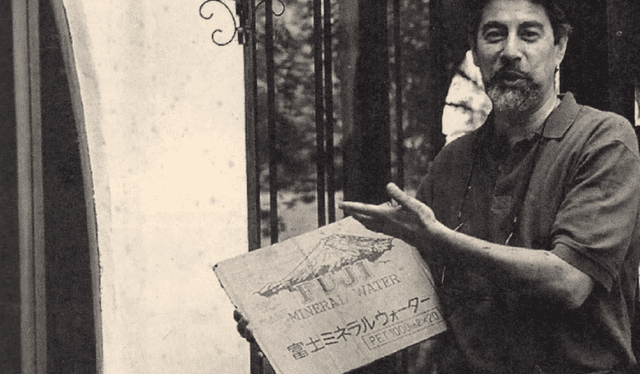 FUJI
MINERAL WATER
富士ミネラルウォーター
PET 1000ml×20